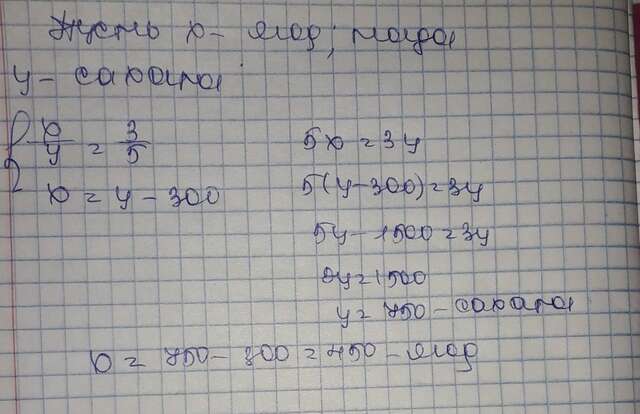 Пусть x - ягод, тогда
y - сахара
{ x/y = 3/5
x = y - 300
5x = 3y
5(y-300) = 3y
5y - 1500 = 3y
2y = 1500
y = 750 - сахара
x = 750 - 300 = 450 - ягод